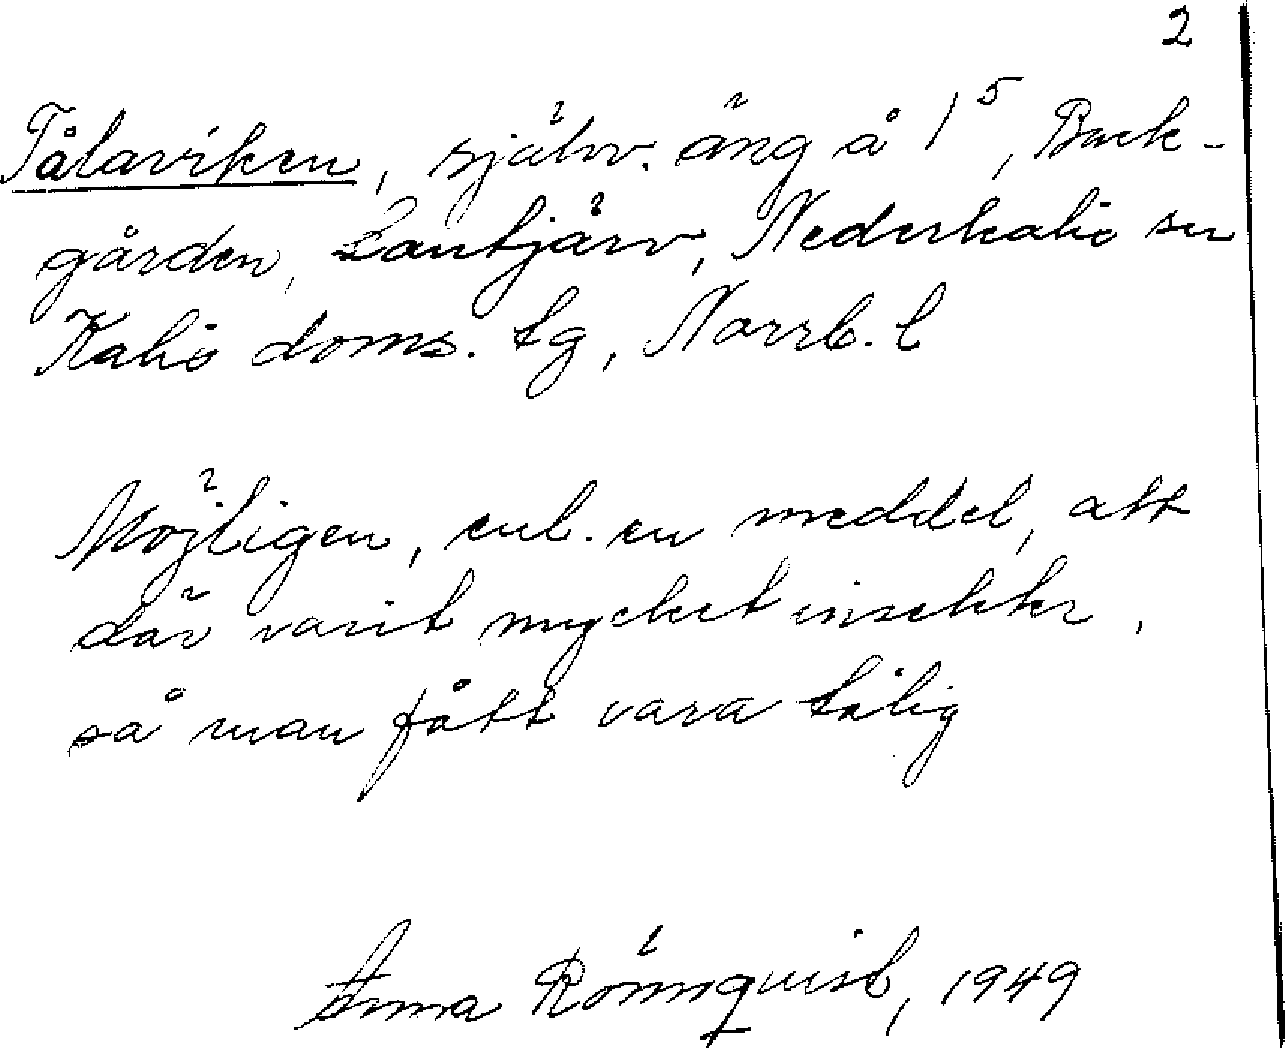 2
Tålaviken, självv. äng å 1⁵, Back-
gården, Lantjärv, Nederkalix sn
Kalix doms. tg, Norrb. l
Möjligen, enl. en meddel, att
där varit mycket insekter,
så man fått vara tålig
Anna Rönnquist, 1949